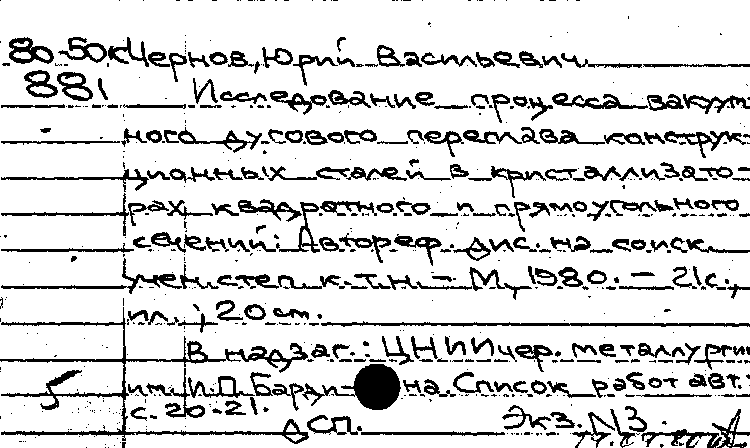 80-50к Чернов, Юрий Васильевич.
881 Исследование процесса вакуум
ного дугового переплава конструк-
ционных сталей в кристаллизато-
рах квадратного и прямоугольного
сечений: Автореф. дис. на соиск.
учен. степ. к.т.н. - М., 1980. - 21с.,
ил.; 20 см.
В надзаг.: ЦНИИчер. металлургии
им. И.П. Барди-на. Список работ авт.:
с. 20-21.
ДСП. Экз. N3.